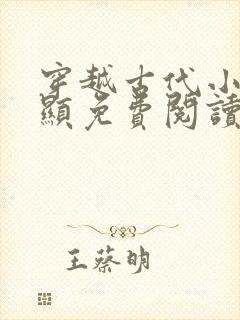 穿越古代小
顯免費閱讀
王蔡明